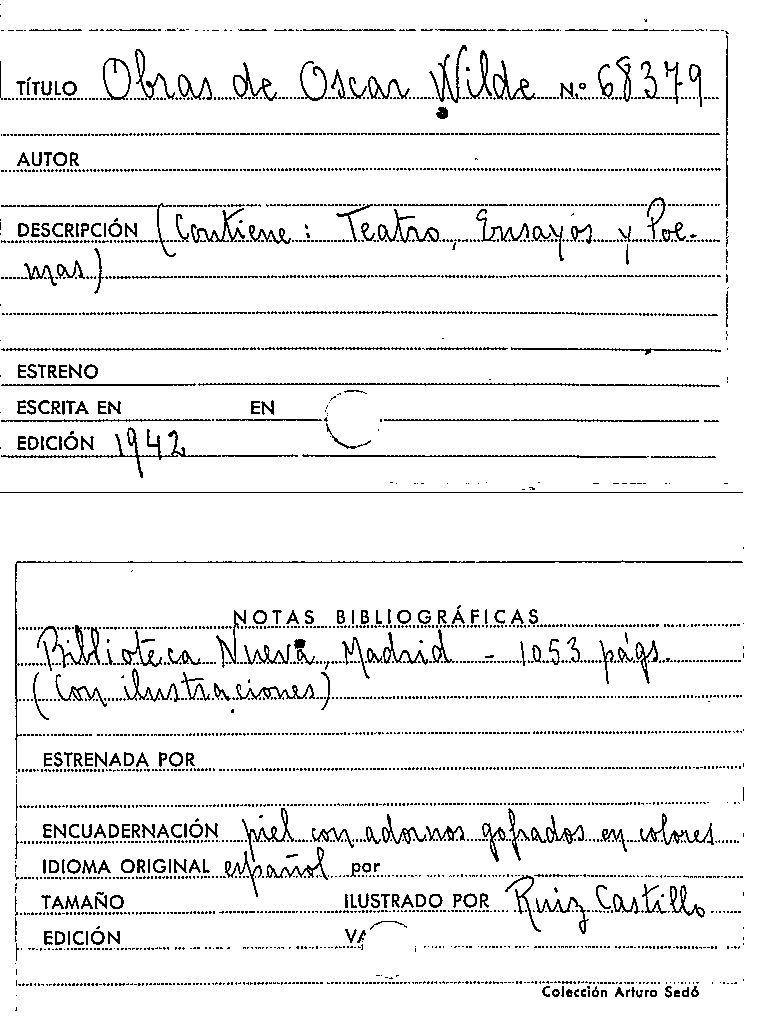 TÍTULO Obras de Oscar Wilde N.º 68379
AUTOR
DESCRIPCIÓN (Contiene: Teatro, Ensayos y Poe-
mas)
ESTRENO
ESCRITA EN EN
EDICIÓN 1942
NOTAS BIBLIOGRÁFICAS
Biblioteca Nueva, Madrid - 1053 págs.
(Con ilustraciones)
ESTRENADA POR
ENCUADERNACIÓN piel con adornos gofrados en colores
IDIOMA ORIGINAL español por
TAMAÑO ILUSTRADO POR Ruiz Castillo
EDICIÓN
Colección Arturo Sedó